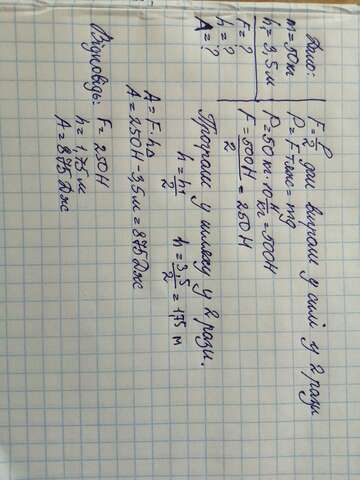 Дано:
m = 50кг
h₁ = 3,5м
F = ?
h = ?
A = ?
F = P/2 дай виграш у силі у 2 рази
P = Fтяж = mg
P = 50кг · 10 Н/кг = 500Н
F = 500Н/2 = 250Н
Програш у шляху у 2 рази.
h = h₁/2 h = 3,5/2 = 1,75 м
A = F · h
A = 250Н · 3,5м = 875Дж
Відповідь: F = 250Н
h = 1,75 м
A = 875 Дж